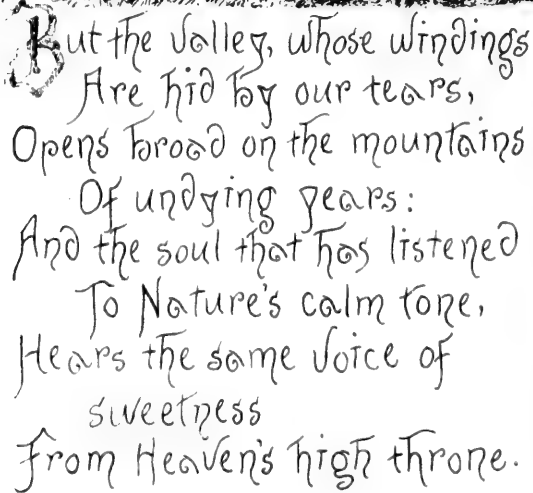 But the valley, whose windings
Are hid by our tears,
Opens broad on the mountains
Of undying years:
And the soul that has listened
To Nature's calm tone,
Hears the same voice of
sweetness
From Heaven's high throne.